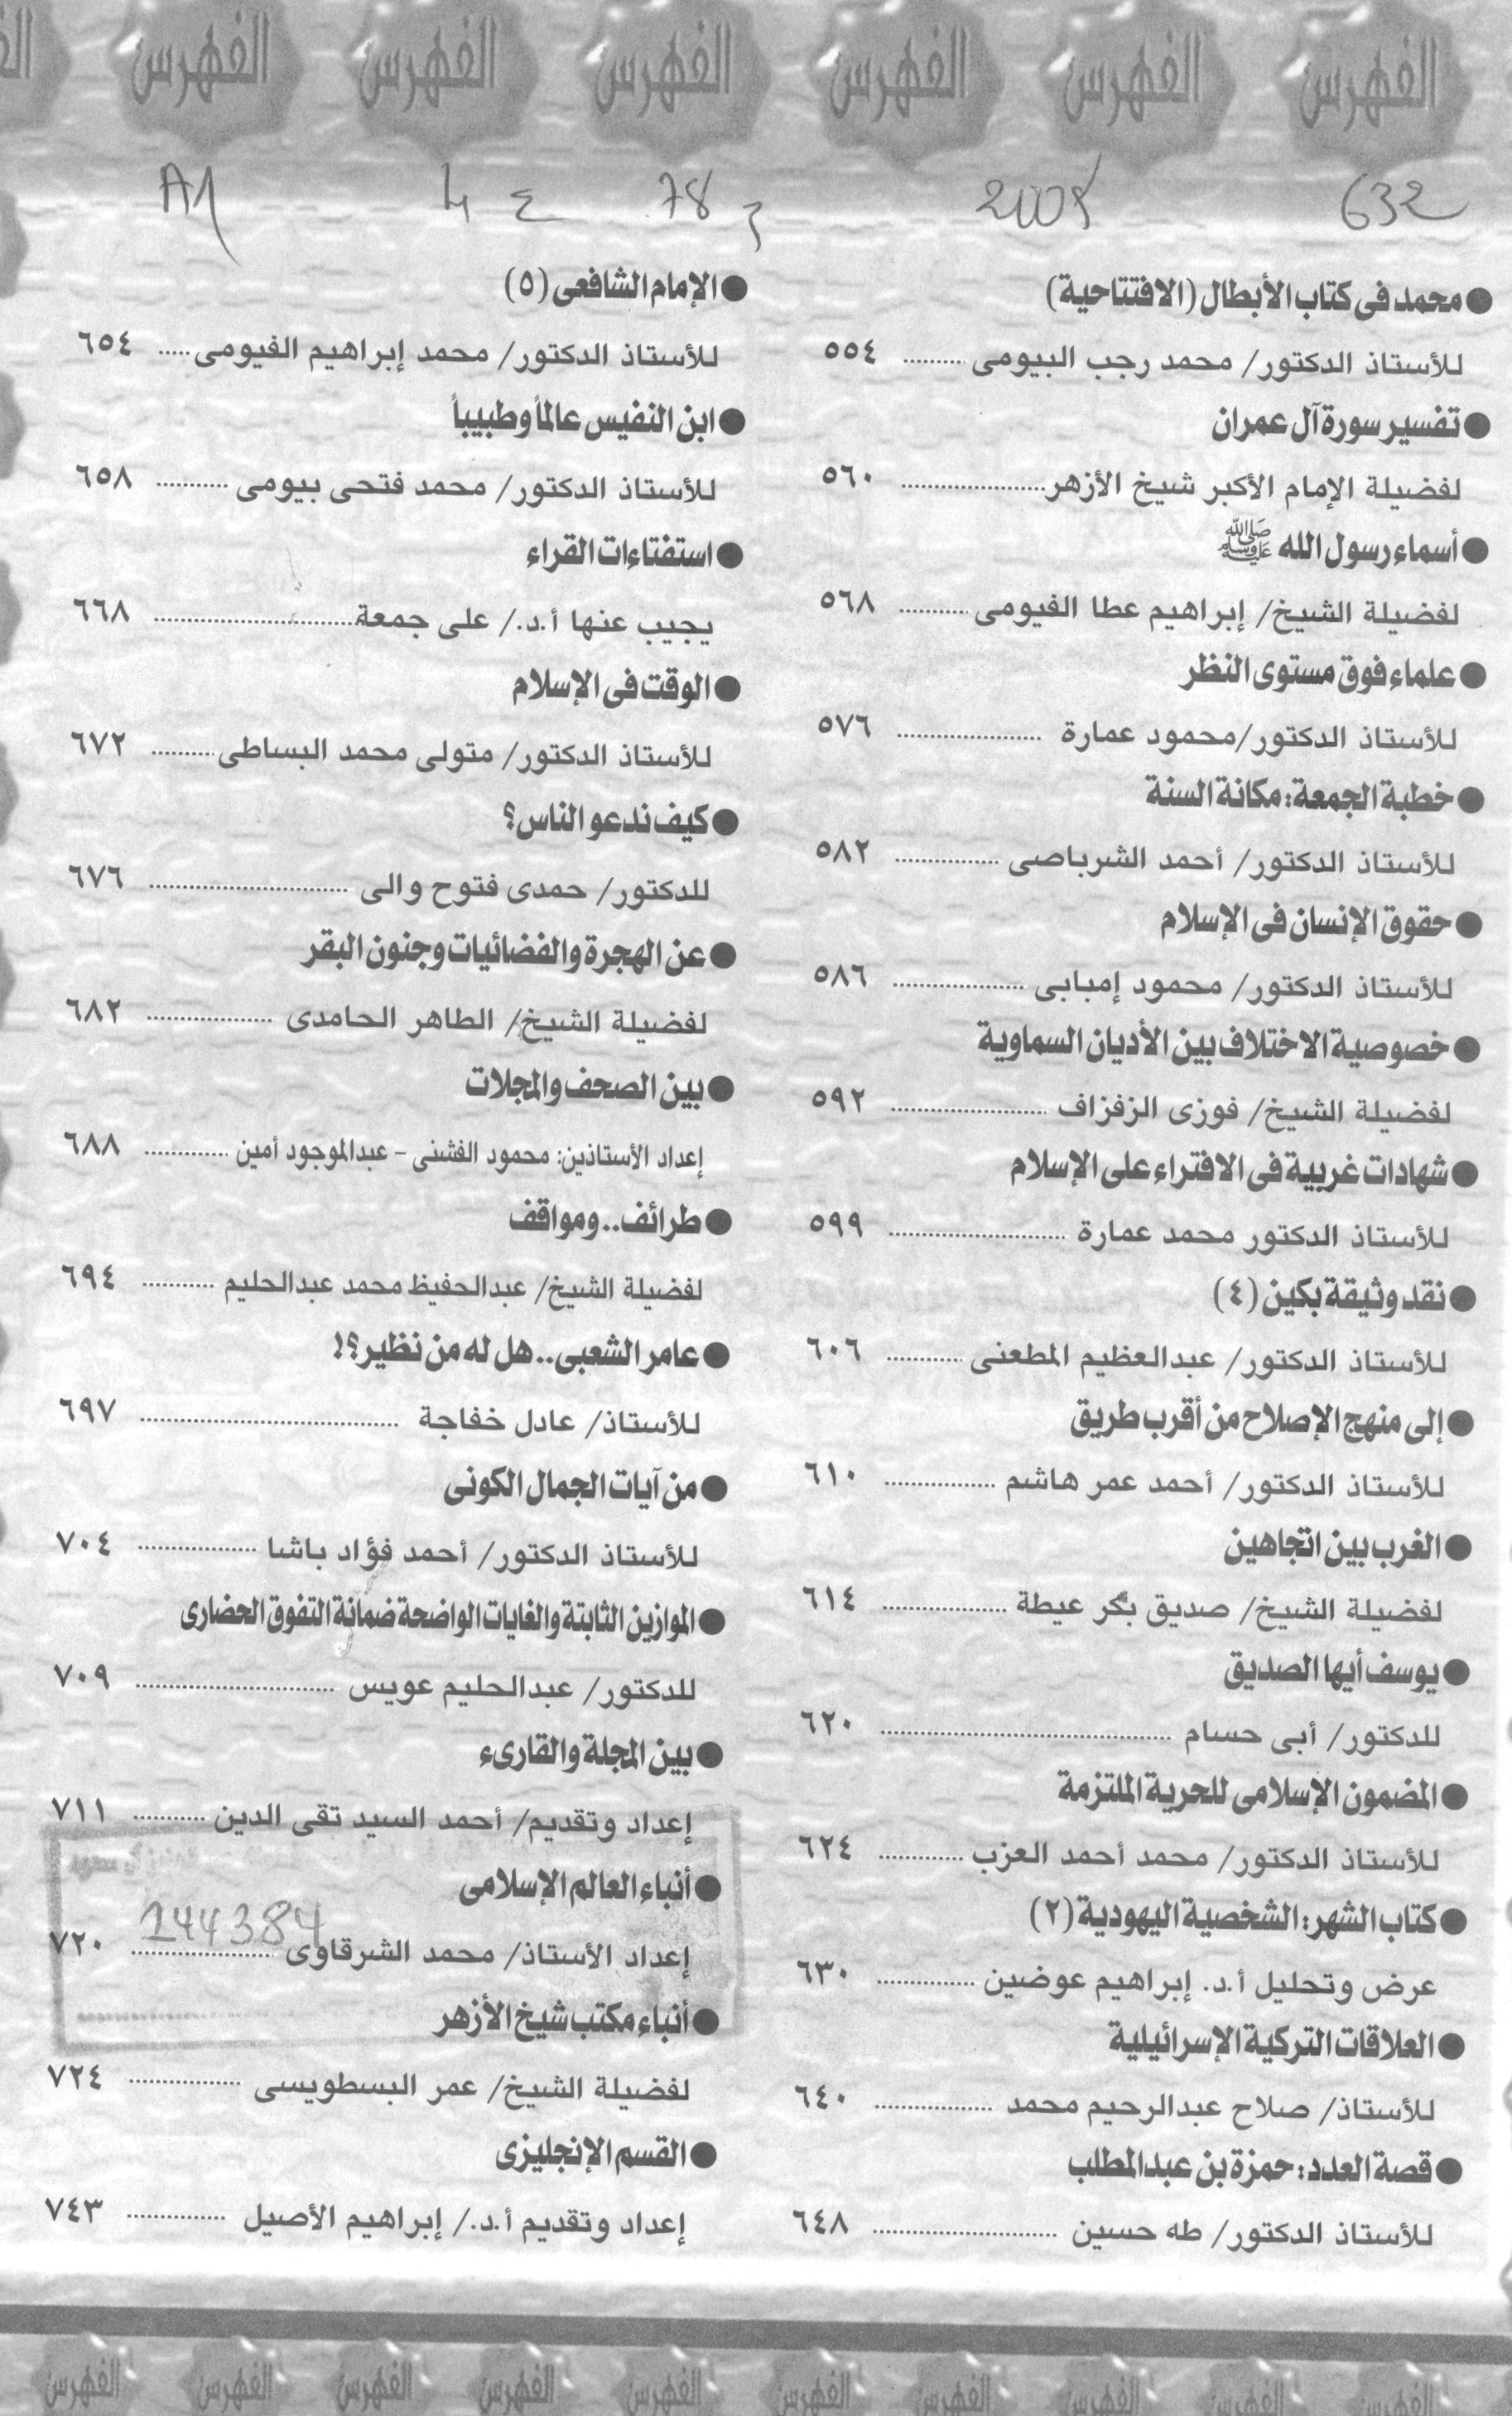 الفهرس الفهرس الفهرس الفهرس الفهرس الفهرس
632 78 ع A1
● محمد فى كتاب الأبطال (الافتتاحية)
للأستاذ الدكتور/ محمد رجب البيومى .......... ٥٥٤
● تفسير سورة آل عمران
لفضيلة الإمام الأكبر شيخ الأزهر...................... ٥٦٠
● أسماء رسول الله ﷺ
لفضيلة الشيخ/ إبراهيم عطا الفيومى ........... ٥٦٨
● علماء فوق مستوى النظر
للأستاذ الدكتور/محمود عمارة ...................... ٥٧٦
● خطبة الجمعة: مكانة السنة
للأستاذ الدكتور/ أحمد الشرباصى ................ ٥٨٢
● حقوق الإنسان فى الإسلام
للأستاذ الدكتور/ محمود إمبابى .................... ٥٨٦
● خصوصية الاختلاف بين الأديان السماوية
لفضيلة الشيخ/ فوزى الزفزاف ........................ ٥٩٢
● شهادات غربية فى الافتراء على الإسلام
للأستاذ الدكتور محمد عمارة ........................... ٥٩٩
● نقد وثيقة بكين (٤)
للأستاذ الدكتور/ عبدالعظيم المطعنى ............ ٦٠٦
● إلى منهج الإصلاح من أقرب طريق
للأستاذ الدكتور/ أحمد عمر هاشم ................. ٦١٠
● الغرب بين اتجاهين
لفضيلة الشيخ/ صديق بكر عيطة ................... ٦١٤
● يوسف أيها الصديق
للدكتور/ أبى حسام ............................................. ٦٢٠
● المضمون الإسلامى للحرية الملتزمة
للأستاذ الدكتور/ محمد أحمد العزب ............. ٦٢٤
● كتاب الشهر: الشخصية اليهودية (٢)
عرض وتحليل أ.د. إبراهيم عوضين ............... ٦٣٠
● العلاقات التركية الإسرائيلية
للأستاذ/ صلاح عبدالرحيم محمد .................. ٦٤٠
● قصة العدد: حمزة بن عبدالمطلب
للأستاذ الدكتور/ طه حسين ............................ ٦٤٨
● الإمام الشافعى (٥)
للأستاذ الدكتور/ محمد إبراهيم الفيومى ..... ٦٥٤
● ابن النفيس عالماً وطبيباً
للأستاذ الدكتور/ محمد فتحى بيومى ............... ٦٥٨
● استفتاءات القراء
يجيب عنها أ.د./ على جمعة................................ ٦٦٨
● الوقت فى الإسلام
للأستاذ الدكتور/ متولى محمد البساطى .......... ٦٧٢
● كيف ندعو الناس؟
للدكتور/ حمدى فتوح والى ............................... ٦٧٦
● عن الهجرة والفضائيات وجنون البقر
لفضيلة الشيخ/ الطاهر الحامدى ................... ٦٨٢
● بين الصحف والمجلات
إعداد الأستاذين: محمود الفشنى - عبدالموجود أمين ............. ٦٨٨
● طرائف.. ومواقف
لفضيلة الشيخ/ عبدالحفيظ محمد عبدالحليم ........... ٦٩٤
● عامر الشعبى.. هل له من نظير؟!
للأستاذ/ عادل خفاجة ........................................ ٦٩٧
● من آيات الجمال الكونى
للأستاذ الدكتور/ أحمد فؤاد باشا .................. ٧٠٤
● الموازين الثابتة والغايات الواضحة ضمانة التفوق الحضارى
للدكتور/ عبدالحليم عويس ............................... ٧٠٩
● بين المجلة والقارىء
إعداد وتقديم/ أحمد السيد تقى الدين ........... ٧١١
● أنباء العالم الإسلامى
144384
إعداد الأستاذ/ محمد الشرقاوى ...................... ٧٢٠
● أنباء مكتب شيخ الأزهر
لفضيلة الشيخ/ عمر البسطويسى ................. ٧٢٤
● القسم الإنجليزى
إعداد وتقديم أ.د./ إبراهيم الأصيل ............... ٧٤٣
الفهرس الفهرس الفهرس الفهرس الفهرس الفهرس الفهرس الفهرس الفهرس الفهرس